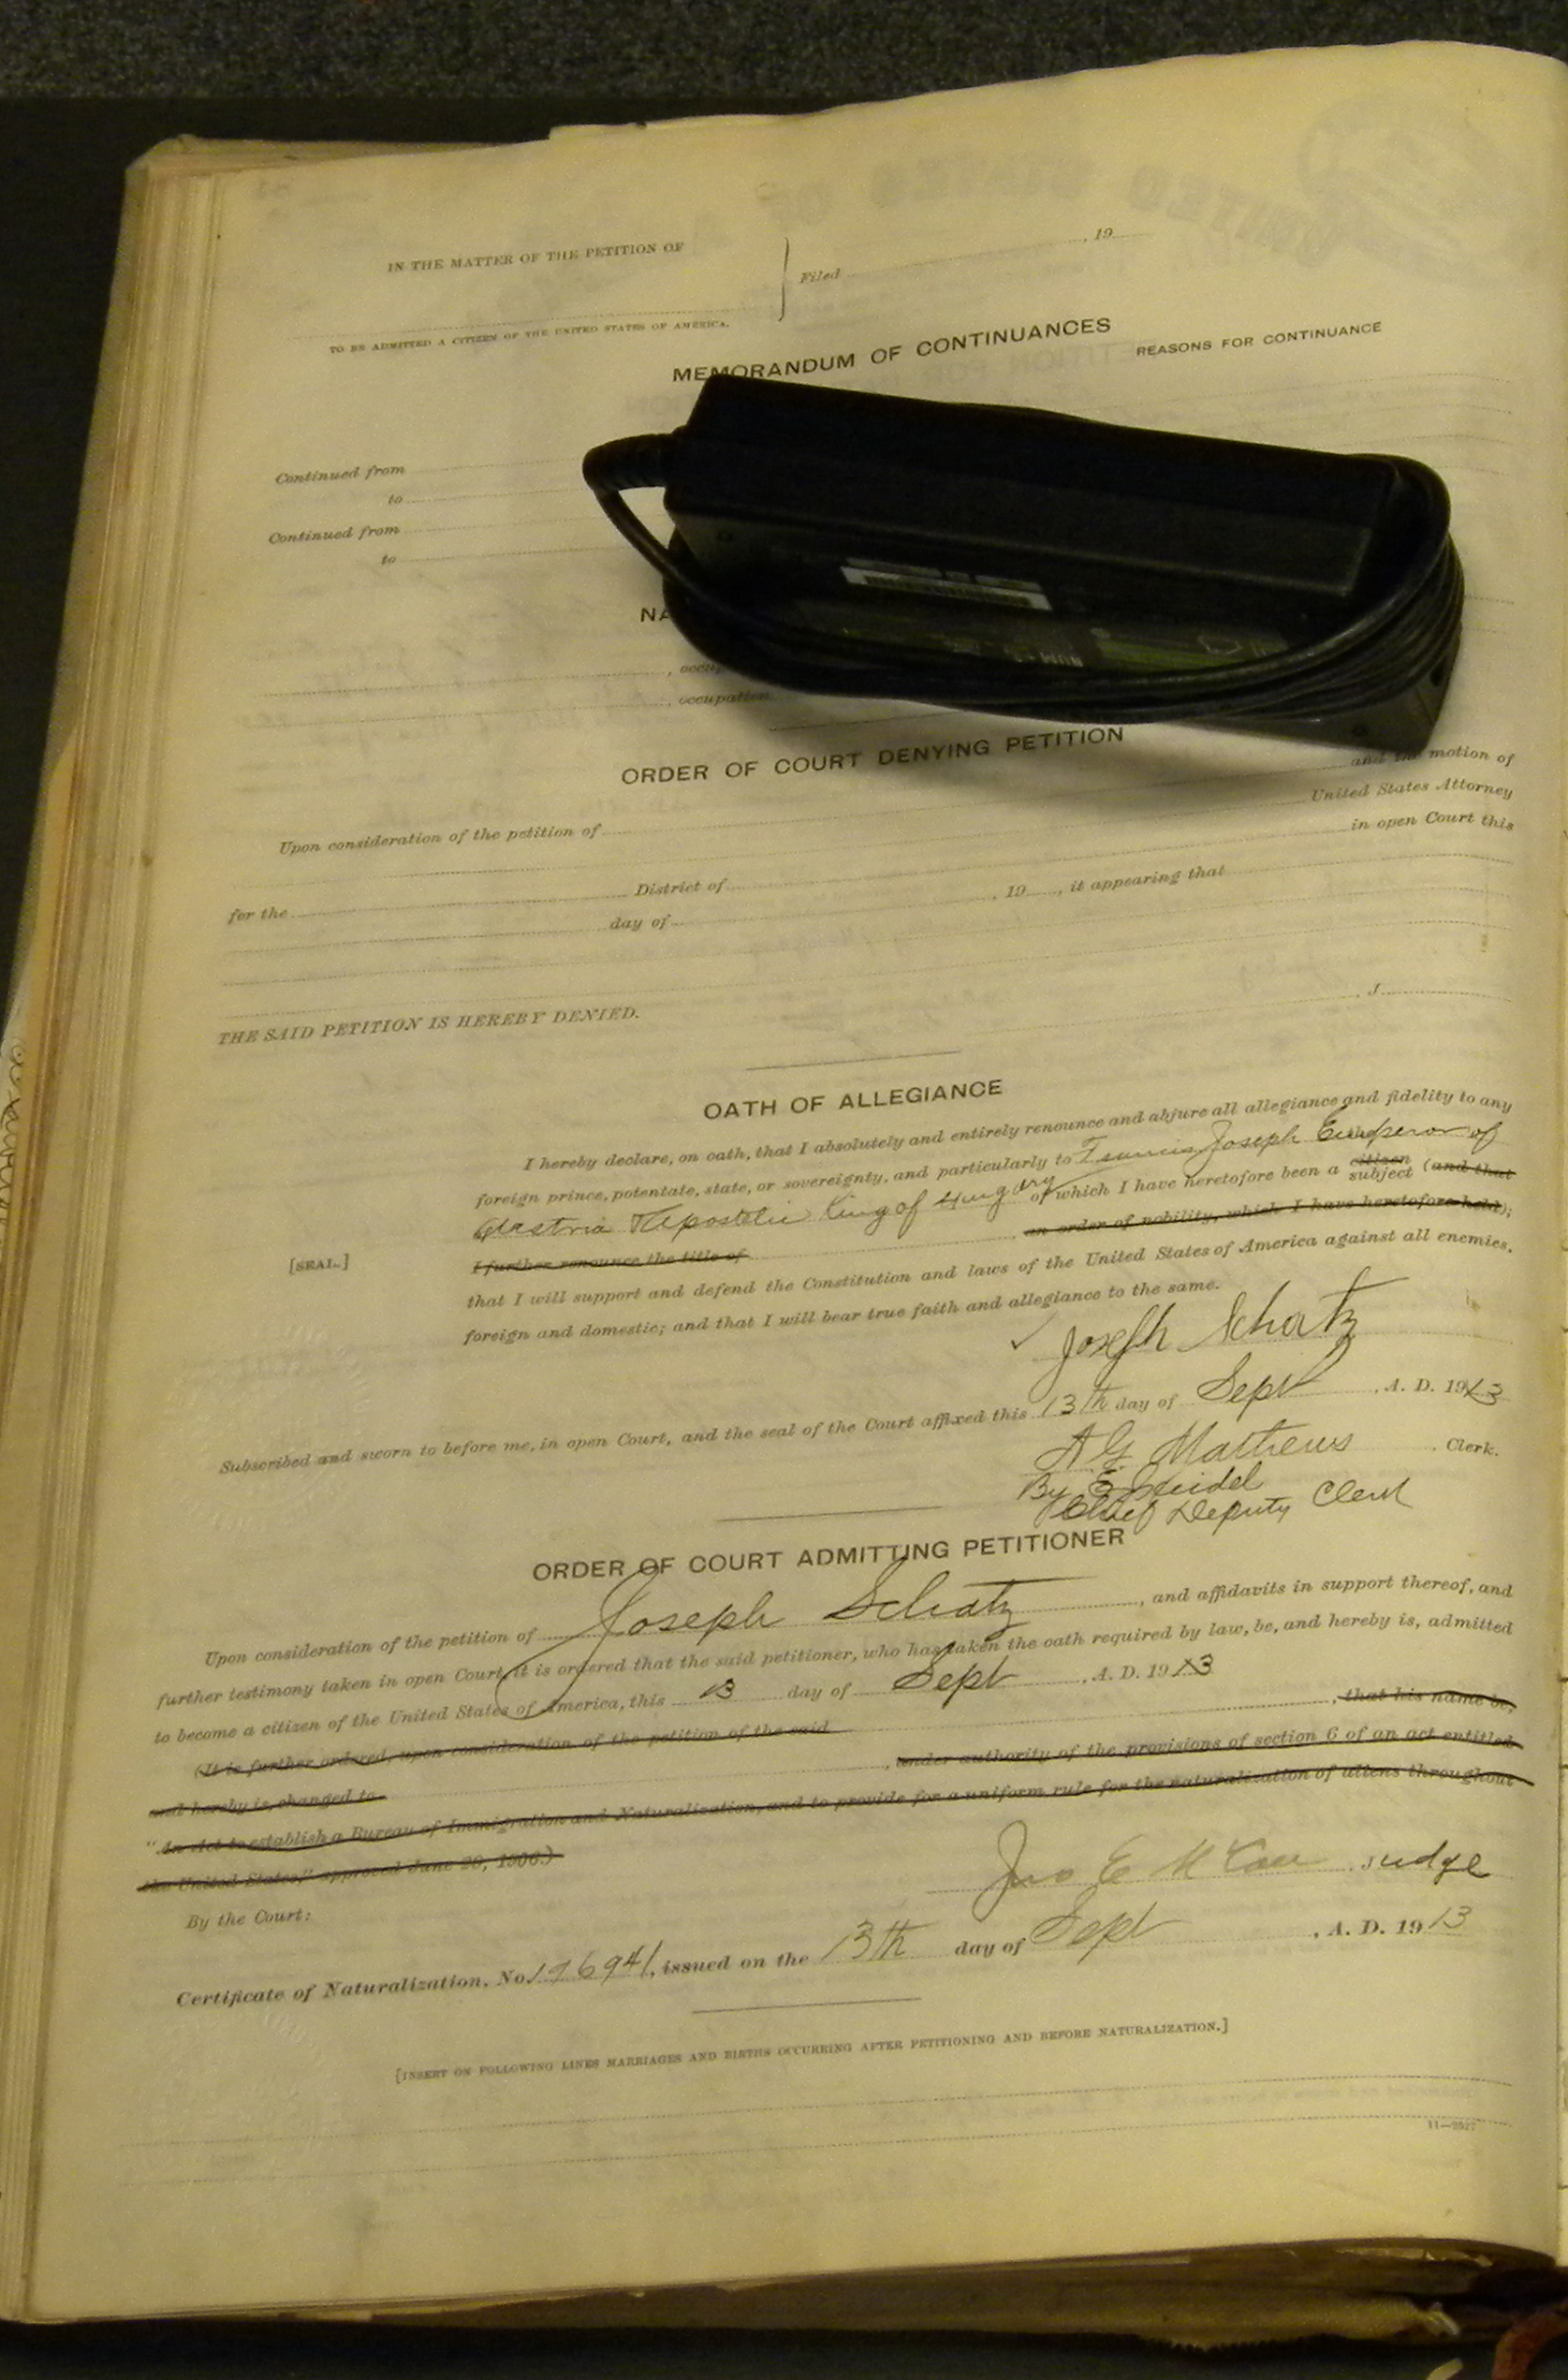 IN THE MATTER OF THE PETITION OF
Filed , 19
TO BE ADMITTED A CITIZEN OF THE UNITED STATES OF AMERICA.
MEMORANDUM OF CONTINUANCES
REASONS FOR CONTINUANCE
Continued from
to
Continued from
to
NA
, occup
, occupation
ORDER OF COURT DENYING PETITION
Upon consideration of the petition of and the motion of
United States Attorney
for the District of in open Court this
day of , 19 , it appearing that
THE SAID PETITION IS HEREBY DENIED.
, J
OATH OF ALLEGIANCE
I hereby declare, on oath, that I absolutely and entirely renounce and abjure all allegiance and fidelity to any
foreign prince, potentate, state, or sovereignty, and particularly to Francis Joseph Emperor of
Austria Apostolic King of Hungary of which I have heretofore been a citizen subject (and that
[SEAL.] I further renounce the title of , an order of nobility, which I have heretofore held);
that I will support and defend the Constitution and laws of the United States of America against all enemies,
foreign and domestic; and that I will bear true faith and allegiance to the same.
Joseph Schatz
Subscribed and sworn to before me, in open Court, and the seal of the Court affixed this 13th day of Sept , A. D. 1913
A G Mathews , Clerk.
By E Seidel
Chief Deputy Clerk
ORDER OF COURT ADMITTING PETITIONER
Upon consideration of the petition of Joseph Schatz , and affidavits in support thereof, and
further testimony taken in open Court, it is ordered that the said petitioner, who has taken the oath required by law, be, and hereby is, admitted
to become a citizen of the United States of America, this 13 day of Sept , A. D. 1913
(It is further ordered, upon consideration of the petition of the said , that his name be,
and hereby is, changed to , under authority of the provisions of section 6 of an act entitled
"An Act to establish a Bureau of Immigration and Naturalization, and to provide for a uniform rule for the naturalization of aliens throughout
the United States," approved June 29, 1906.)
By the Court:
Jno E McCall , Judge
Certificate of Naturalization, No. 176941, issued on the 13th day of Sept , A. D. 1913
[INSERT ON FOLLOWING LINES MARRIAGES AND BIRTHS OCCURRING AFTER PETITIONING AND BEFORE NATURALIZATION.]
11—2527